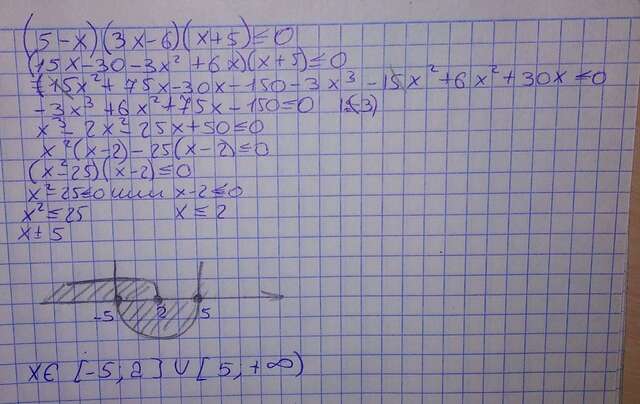 (5-x)(3x-6)(x+5)≤0
(15x-30-3x²+6x)(x+5)≤0
15x²+75x-30x-150-3x³-15x²+6x²+30x≤0
-3x³+6x²+75x-150≤0 |:(-3)
x³-2x²-25x+50≤0
x²(x-2)-25(x-2)≤0
(x²-25)(x-2)≤0
x²-25≤0 или x-2≤0
x²≤25 x≤2
x±5
-5 2 5
x∈[-5;2]∪[5;+∞)